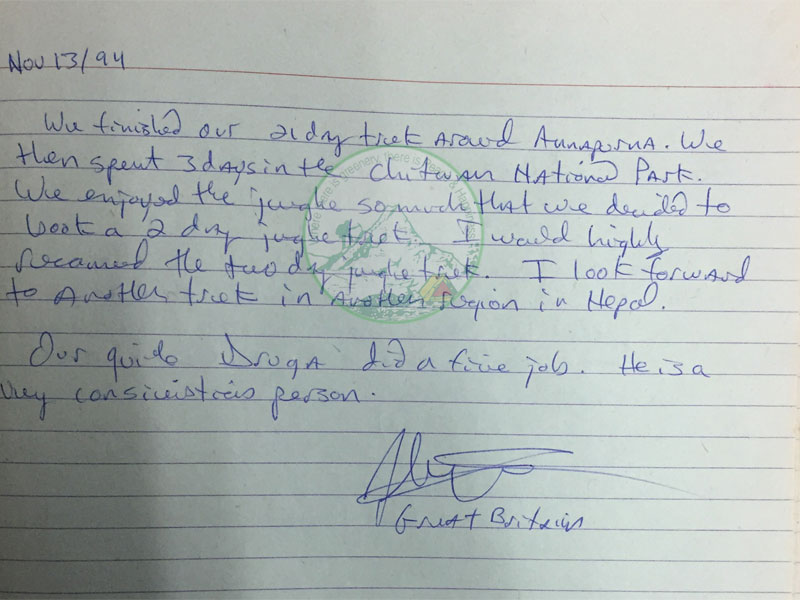 Nov 13/94
We finished our 21 day trek around Annapurna. We
then spent 3 days in the Chitwan National Park.
We enjoyed the jungle so much that we decided to
book a 2 day jungle trek. I would highly
recomend the two day jungle trek. I look forward
to another trek in another region in Nepal.
Our guide Druga did a fine job. He is a
very person.
Great Britain